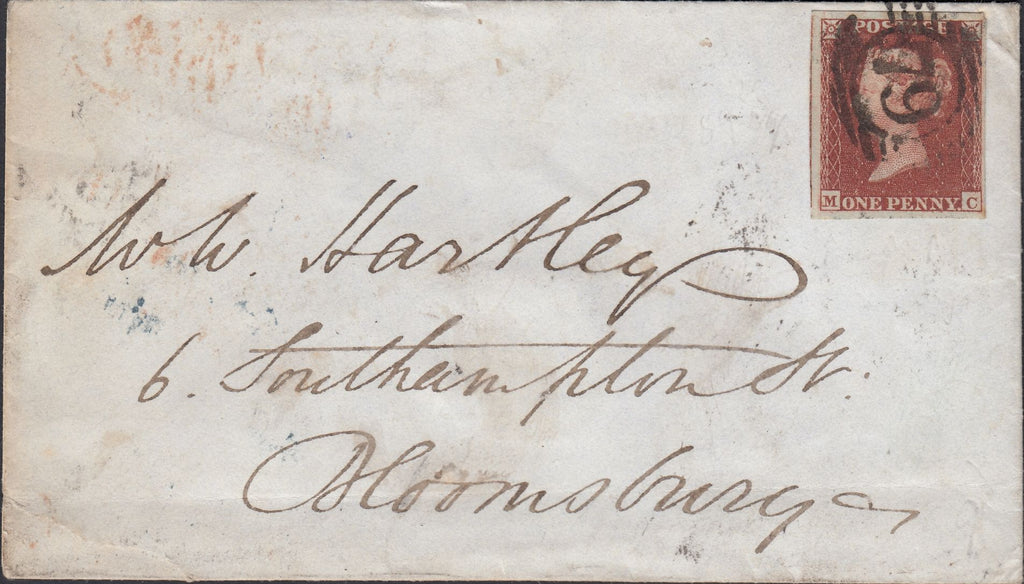 POSTAGE
ONE PENNY
M C
W. W. Hartley
6. Southampton St.
Bloomsbury